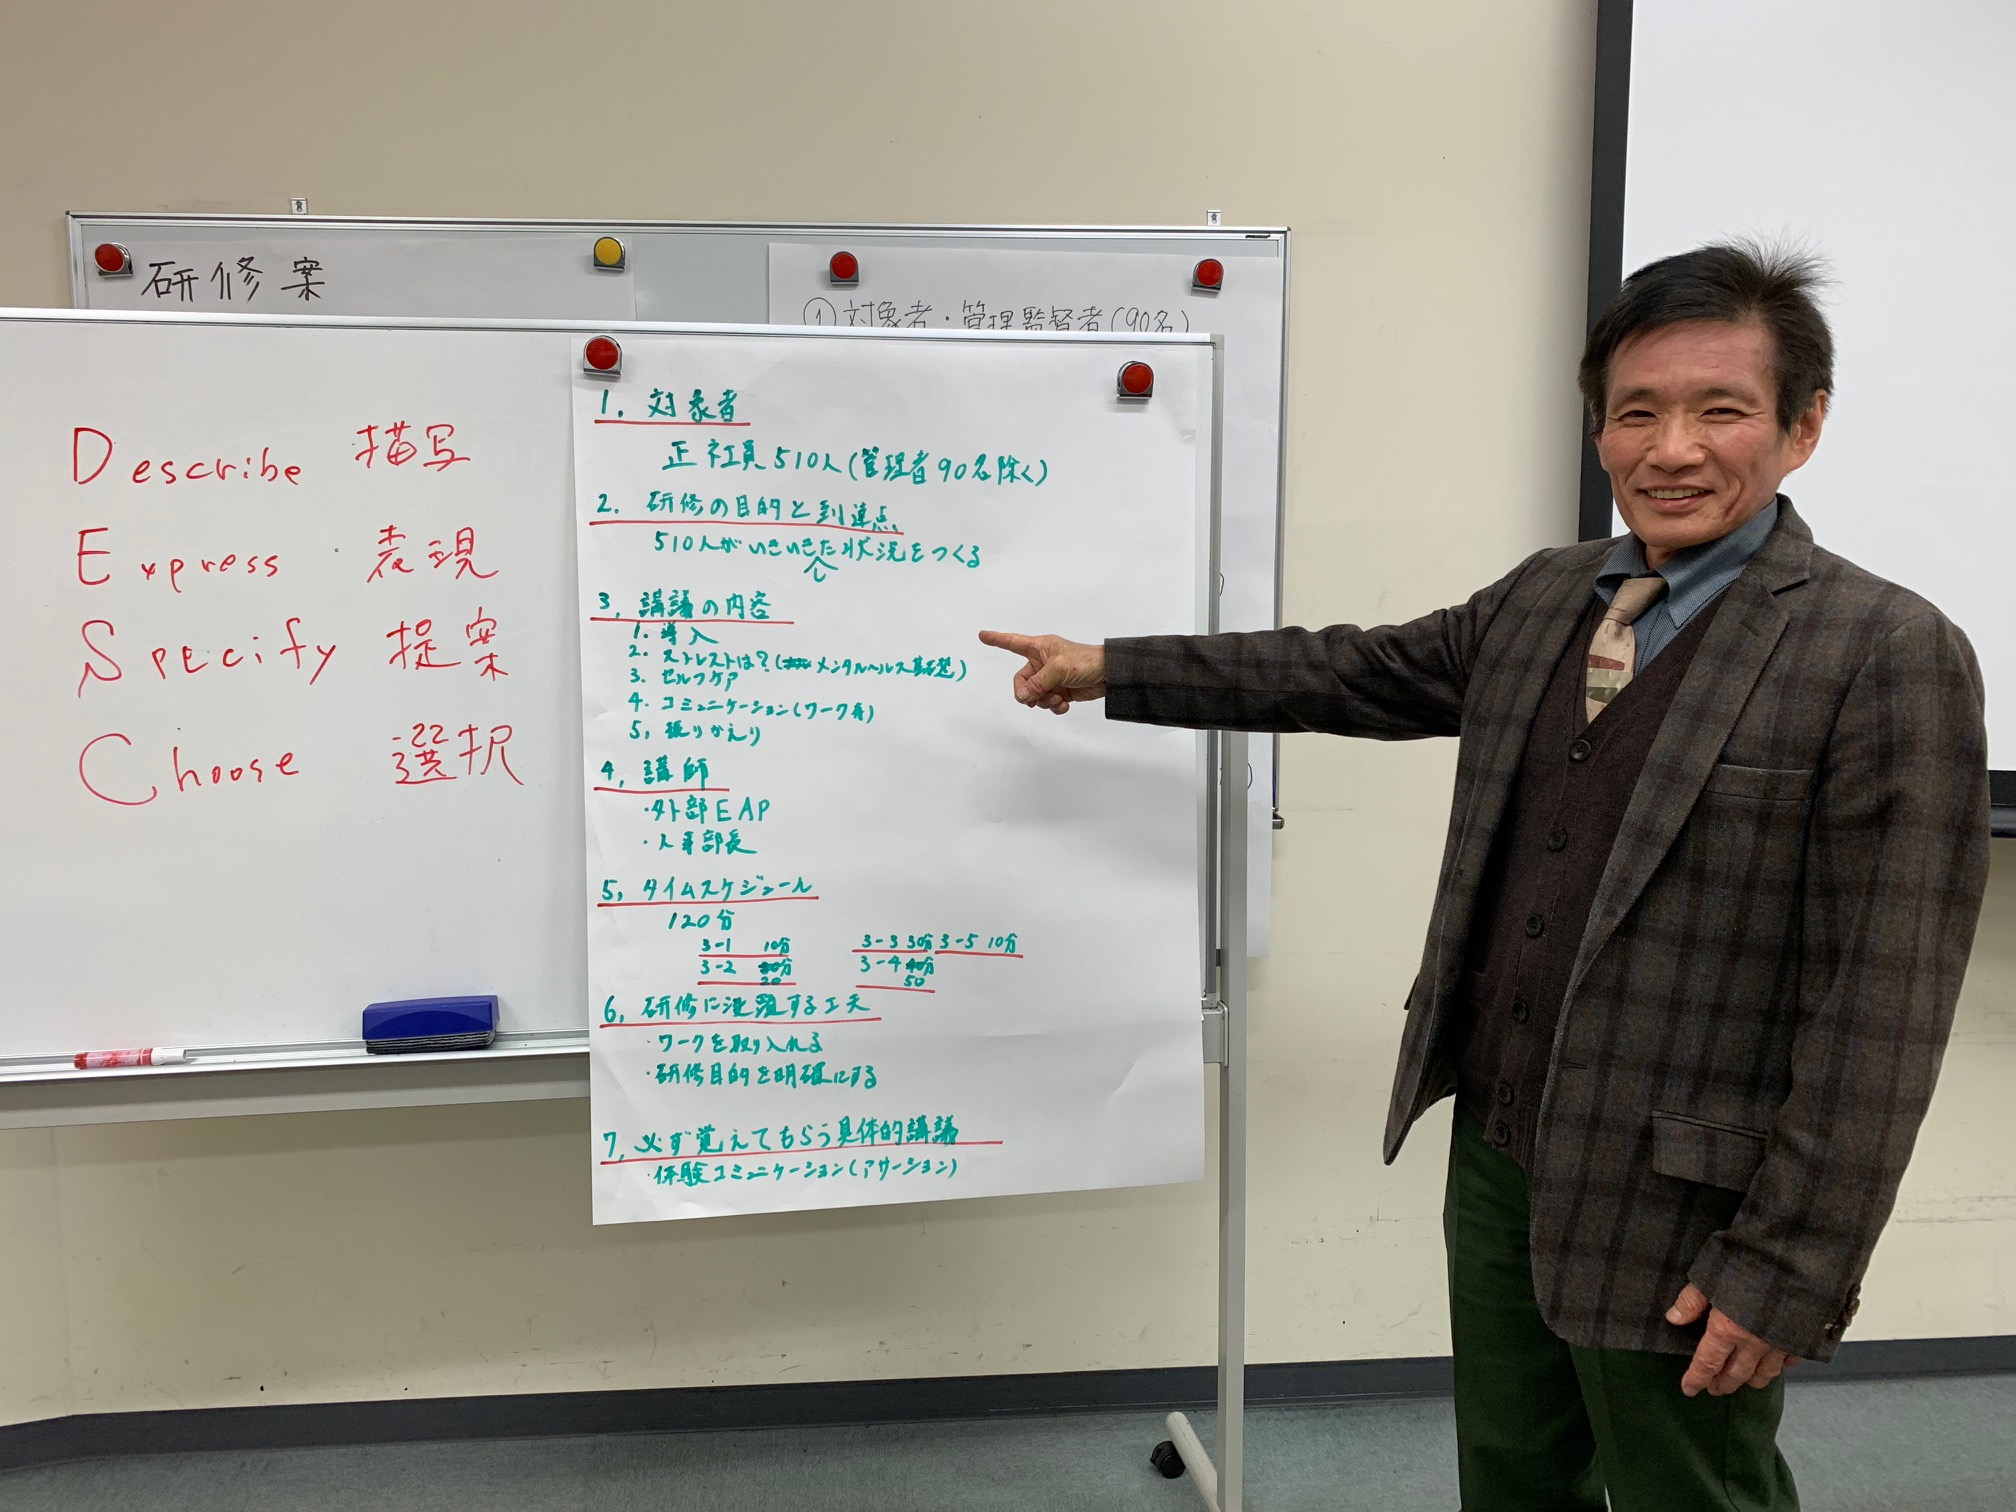 研修案
①対象者・管理監督者(90名)
Describe 描写
Express 表現
Specify 提案
Choose 選択
1. 対象者
正社員510人(管理者90名除く)
2. 研修の目的と到達点
510人がいきいきた状況をつくる
し
3, 講議の内容
1. 導入
2. ストレストは?(メンタルヘルス基礎)
3. セルフケア
4. コミュニケーション(ワーク有)
5, 振りかえり
4, 講師
・外部EAP
・人事部長
5, タイムスケジュール
120分
3-1 10分 3-3 30分 3-5 10分
3-2 分 3-4 分
20 50
6, 研修に没頭する工夫
・ワークを取り入れる
・研修目的を明確にする
7, 必ず覚えてもらう具体的講議
・体験コミュニケーション(アサーション)